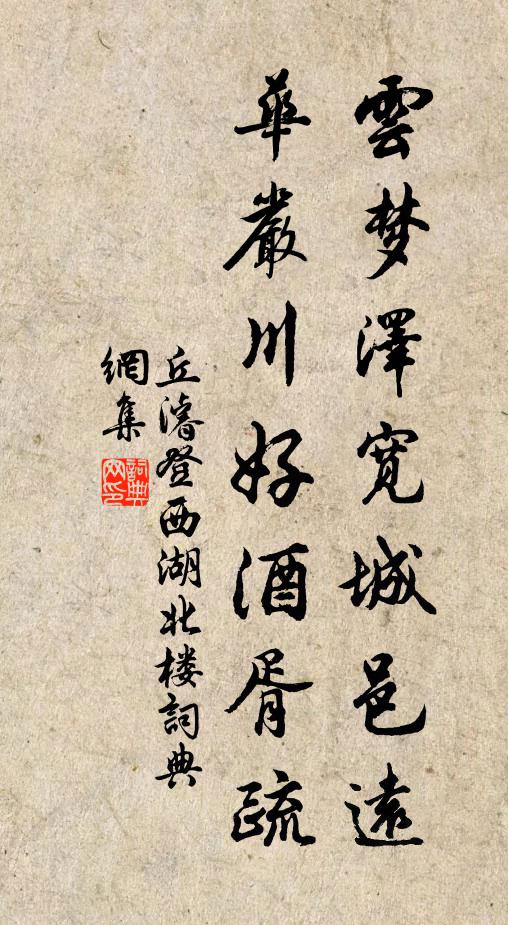 雲梦澤寬城邑遠
華嚴川好酒胥疏
丘濬登西湖北楼詞典
網集
詞典网印